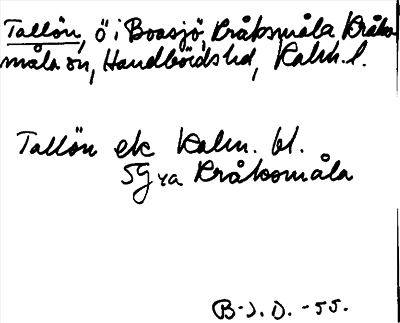 Tallön, ö i Boasjö, Kråksmåla Kråks-
måla sn, Handbörds hd, Kalm. l.
Tallön ek Kalm. bl.
5G ya Kråksmåla
B-J. D. -55.